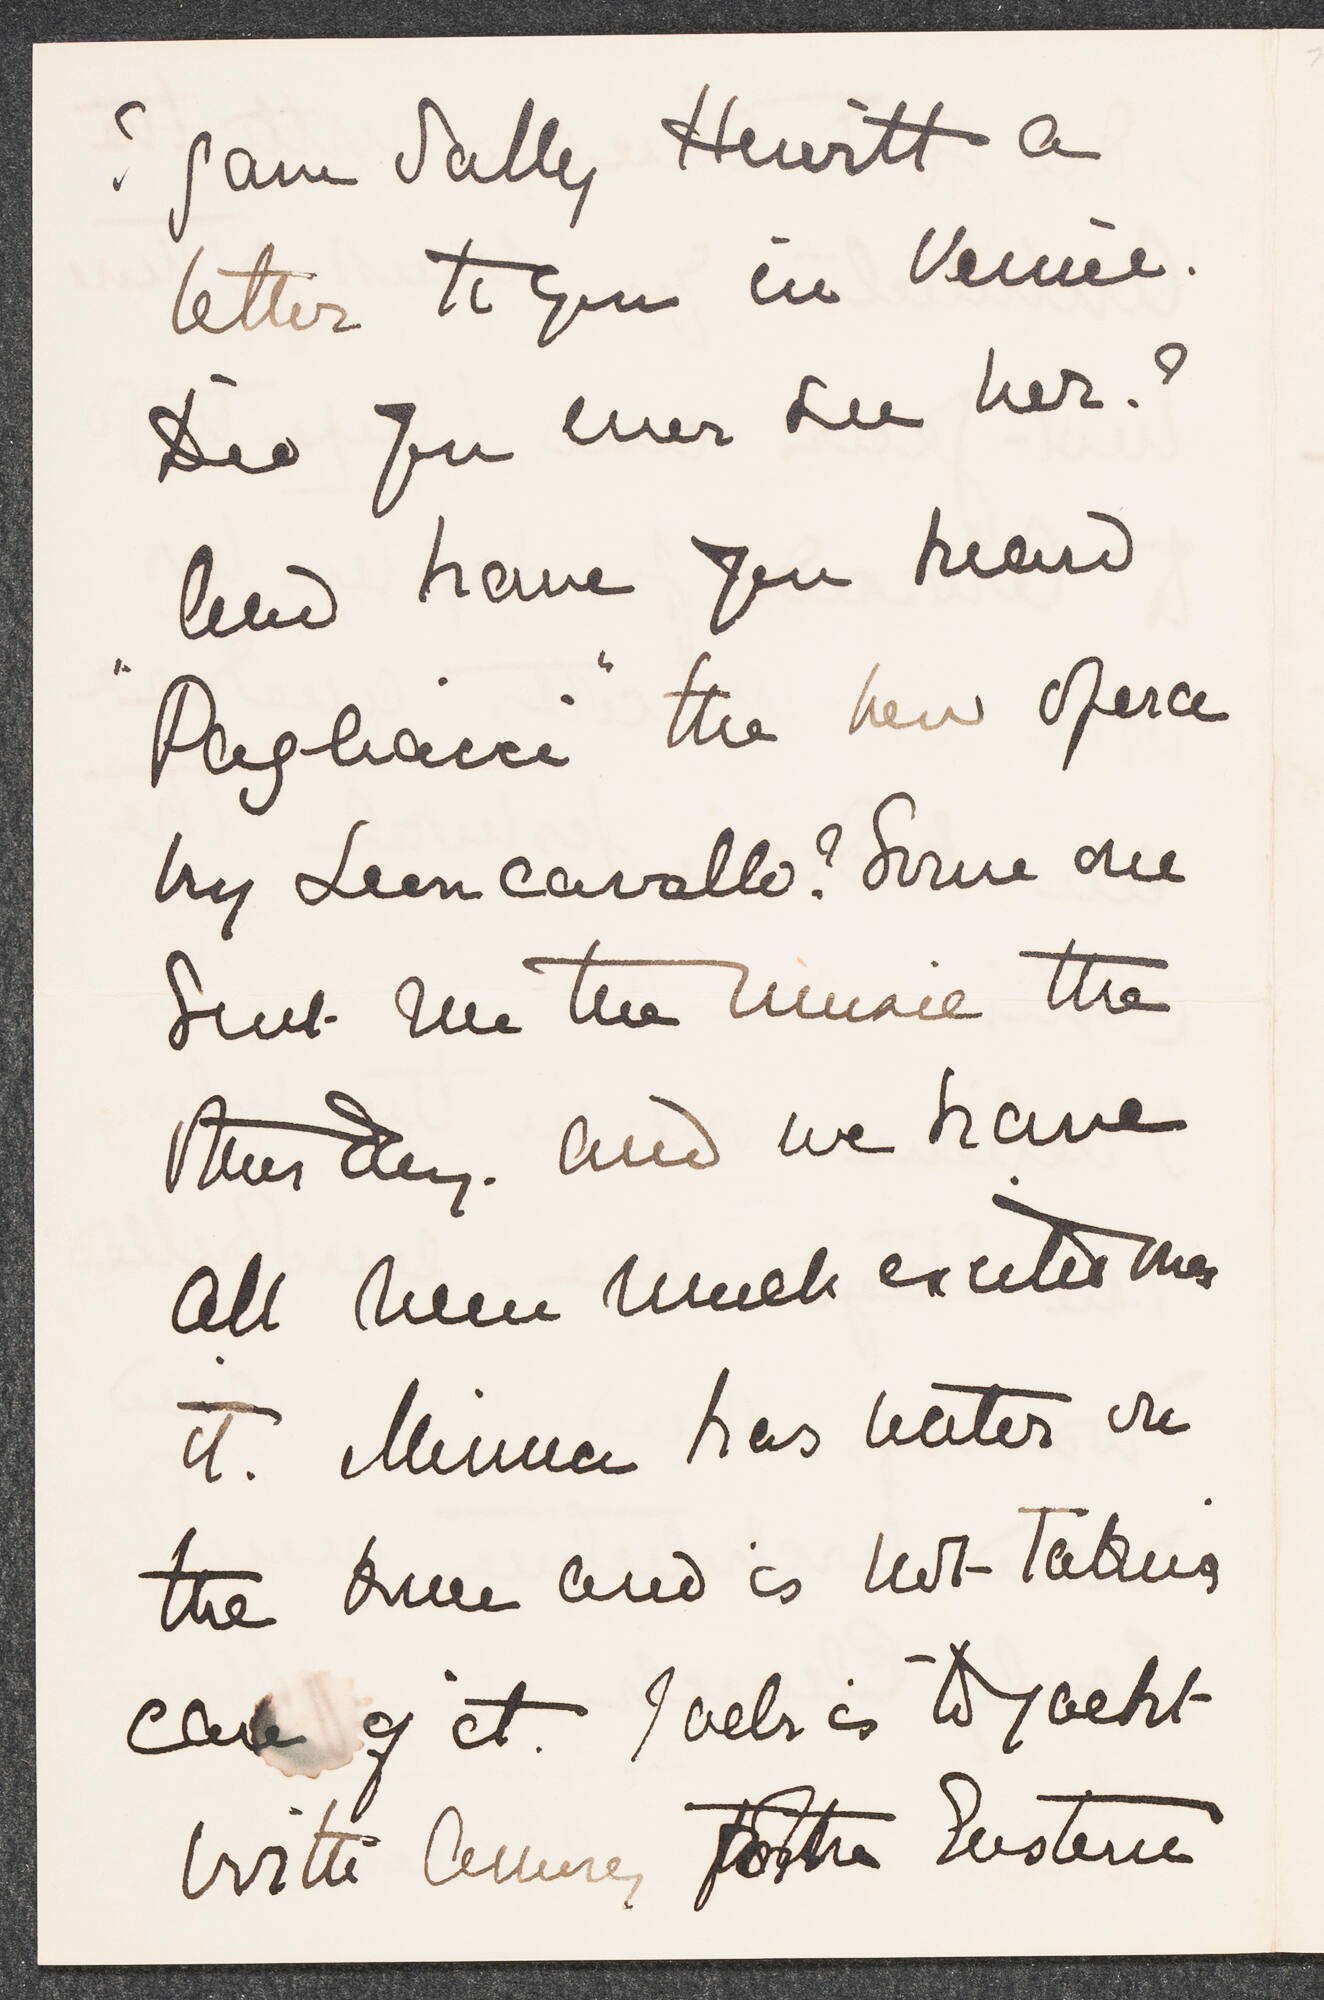 I gave Sally Hewitt a
letter to you in Venice.
Did you ever see her.?
And have you heard
"Pagliacci" the new opera
by Leoncavallo? Some one
sent me the music the
other day. and we have
all been much excited over
it. Minna has water on
the knee and is not taking
care of it. Jack is to yacht
with Amory for the Eastern